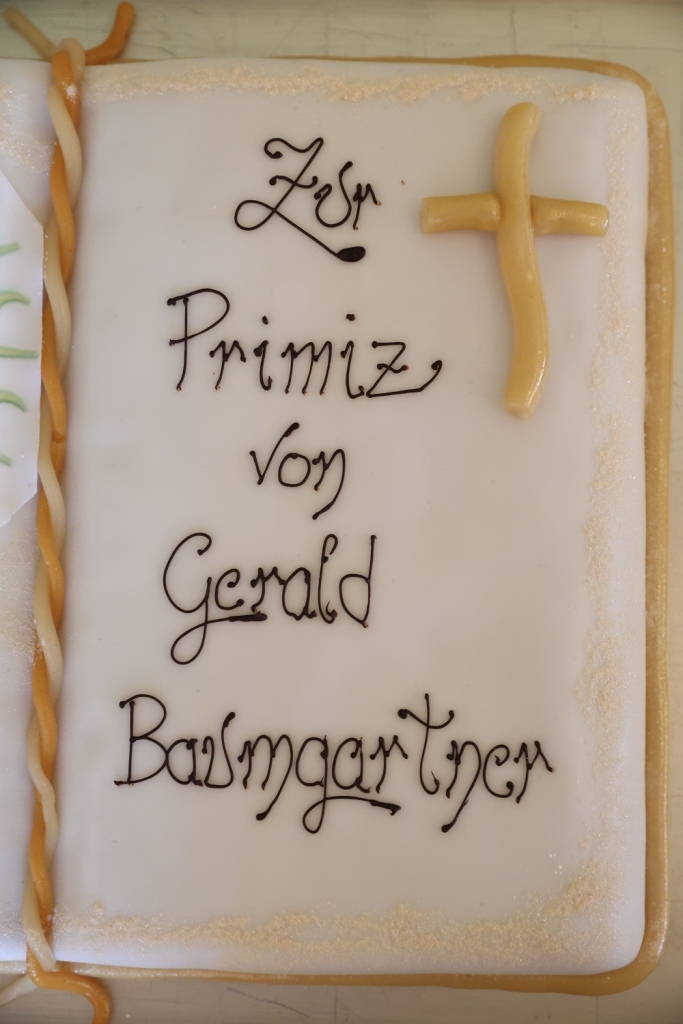 Zur
Primiz
von
Gerald
Baumgartner